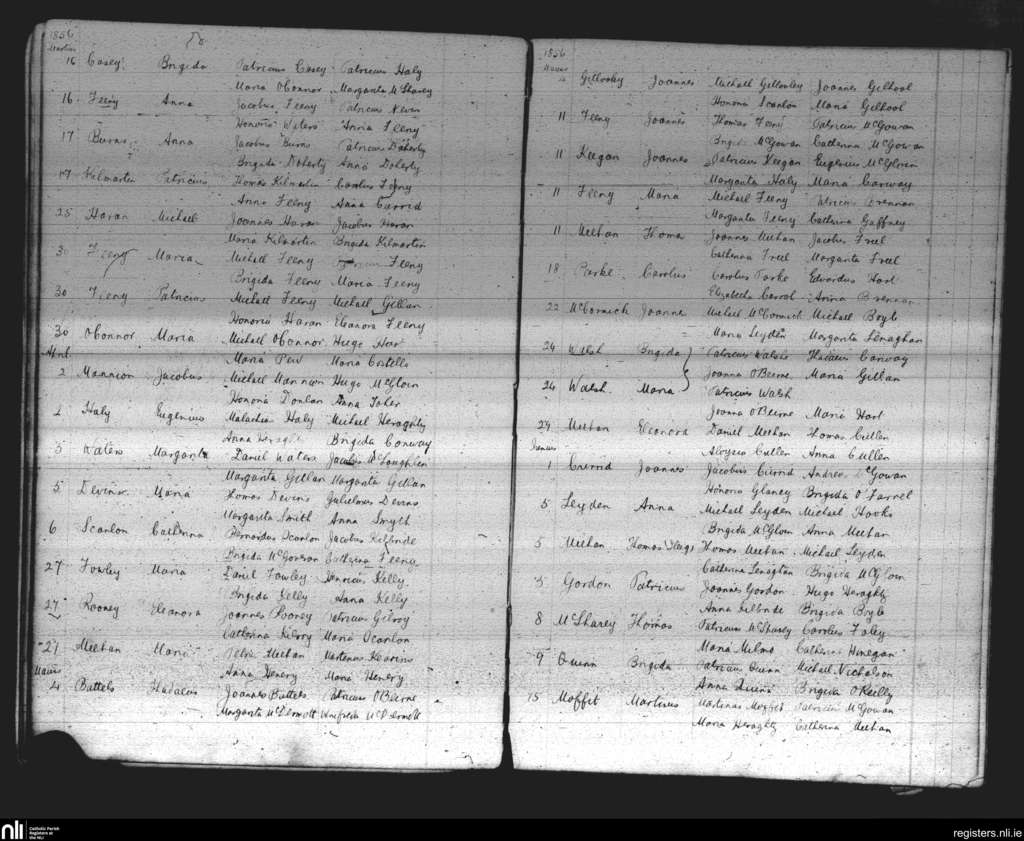 1856
Martius
16 Casey Brigida Patricius Casey Patricius Haly
Maria O'Connor Margarita McSharey
16 Feeny Anna Jacobus Feeny Patricius Nevin
Honoria Waters Anna Feeny
17 Burns Anna Jacobus Burns Patricius Doherty
Brigida Doherty Anna Doherty
17 Kilmartin Patricius Thomas Kilmartin Carolus Feeny
Anna Feeny Anna Currid
25 Haran Michael Joannes Haran Jacobus Haran
Maria Kilmartin Brigida Kilmartin
30 Feeny Maria Michael Feeny Feeny
Brigida Feeny Maria Feeny
30 Feeny Patricius Michael Feeny Michael Gillan
Honoria Haran Eleanora Feeny
30 O'Connor Maria Michael O'Connor Hugo Hart
April
Maria Pew Maria Costello
2 Mannion Jacobus Michael Mannion Hugo McGloin
Honoria Donlan Anna Toher
2 Haly Eugenius Malachia Haly Michael Heraghty
Anna Heraghty Brigida Conway
3 Waters Margarita Daniel Waters Jacobus McLoughlin
Margarita Gillan Margarita Gillan
5 Devins Maria Thomas Devins Julielmus Devins
Margarita Smith Anna Smyth
6 Scanlon Catherina Bernardus Scanlon Jacobus Kilfinde
Brigida McGowan Catherina Feeny
27 Fowley Maria Daniel Fowley Kelly
Brigida Kelly Anna Kelly
27 Rooney Eleanora Joannes Rooney Patricius Gilroy
Catherina Gilroy Maria Scanlon
27 Meehan Maria Meehan Martinus Kearins
Maius
Anna Henery Maria Henery
4 Battels Thadaeus Joannes Battels Patricius O'Beirne
Margarita McDermott Winifrida McDermott
1856
Maius
4 Gillooley Joannes Michael Gillooley Joannes Gilhool
Honoria Scanlon Maria Gilhool
11 Feeny Joannes Thomas Feeny Patricius McGowan
Brigida McGowan Catherina McGowan
11 Keegan Joannes Patricius Keegan Eugenius McGloin
Margarita Haly Maria Conway
11 Feeny Maria Michael Feeny Patricius Brennan
Margarita Feeny Catherina Gaffney
11 Meehan Thomas Joannes Meehan Jacobus Freel
Catherina Freel Margarita Freel
18 Parke Carolus Carolus Parke Edwardus Hart
Elizabeth Carrol Anna Brennan
22 McCormick Joannes Michael McCormick Michael Boyle
Maria Leyden Margarita Lenaghan
24 Walsh Brigida Patricius Walshe Thadaeus Conway
Joanna O'Beirne Maria Gillan
24 Walsh Maria Patricius Walsh
Joanna O'Beirne Maria Hart
29 Meehan Eleonora Daniel Meehan Thomas Cullen
Junius
Aloysia Cullen Anna Cullen
1 Currid Joannes Jacobus Currid Andreas McGowan
Honoria Glancy Brigida O'Farrel
5 Leyden Anna Michael Leyden Michael Hooks
Brigida McGloin Anna Meehan
5 Meehan Thomas Hugo Thomas Meehan Michael Leyden
Catherina Lenaghan Brigida McGloin
5 Gordon Patricius Joannes Gordon Hugo Heraghty
Anna Kilfinde Brigida Boyle
8 McSharey Thomas Patricius McSharey Carolus Foley
Maria Milmo Catherina Finegan
9 Quinn Brigida Patricius Quinn Michael Nicholson
Anna Quinn Brigida O'Reilly
15 Moffit Martinus Martinus Moffit Patricius McGowan
Maria Heraghty Catherina Meehan
nli Catholic Parish Registers at the NLI
registers.nli.ie